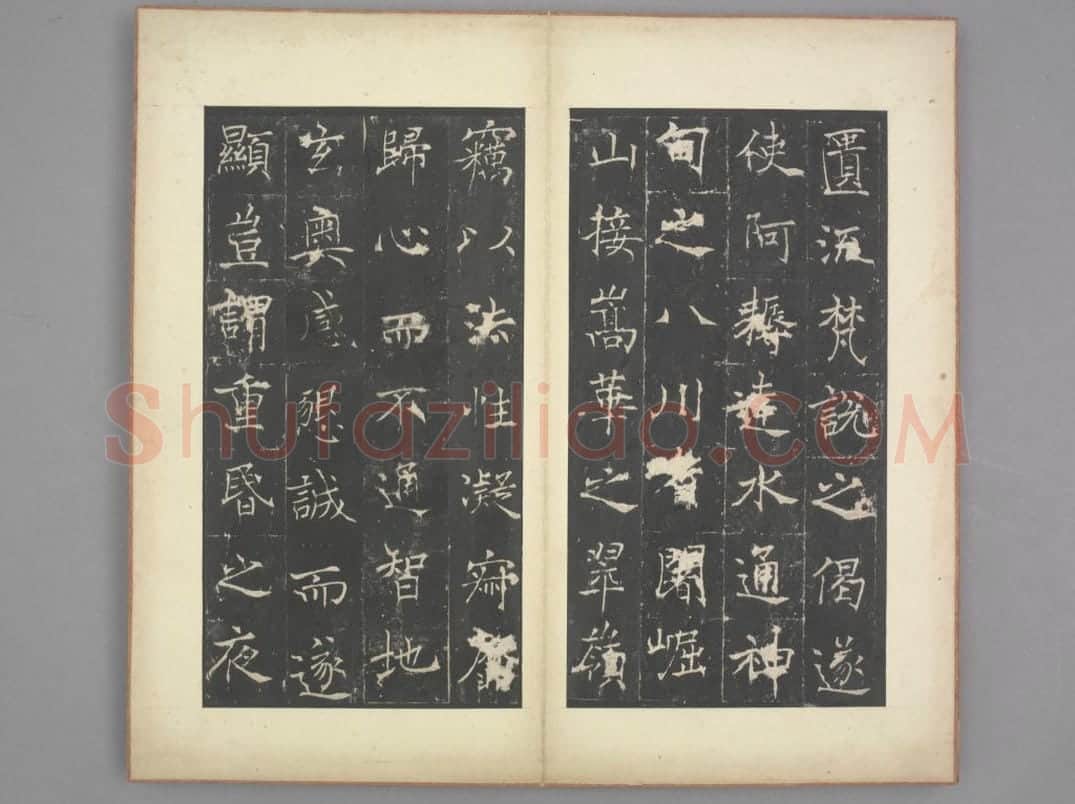 匱流梵說之偈遂
使阿耨達水通神
甸之八川耆闍崛
山接嵩華之翠嶺
竊以法性凝寂靡
歸心而不通智地
玄奧感懇誠而遂
顯豈謂重昏之夜
Shufaziliao.COM